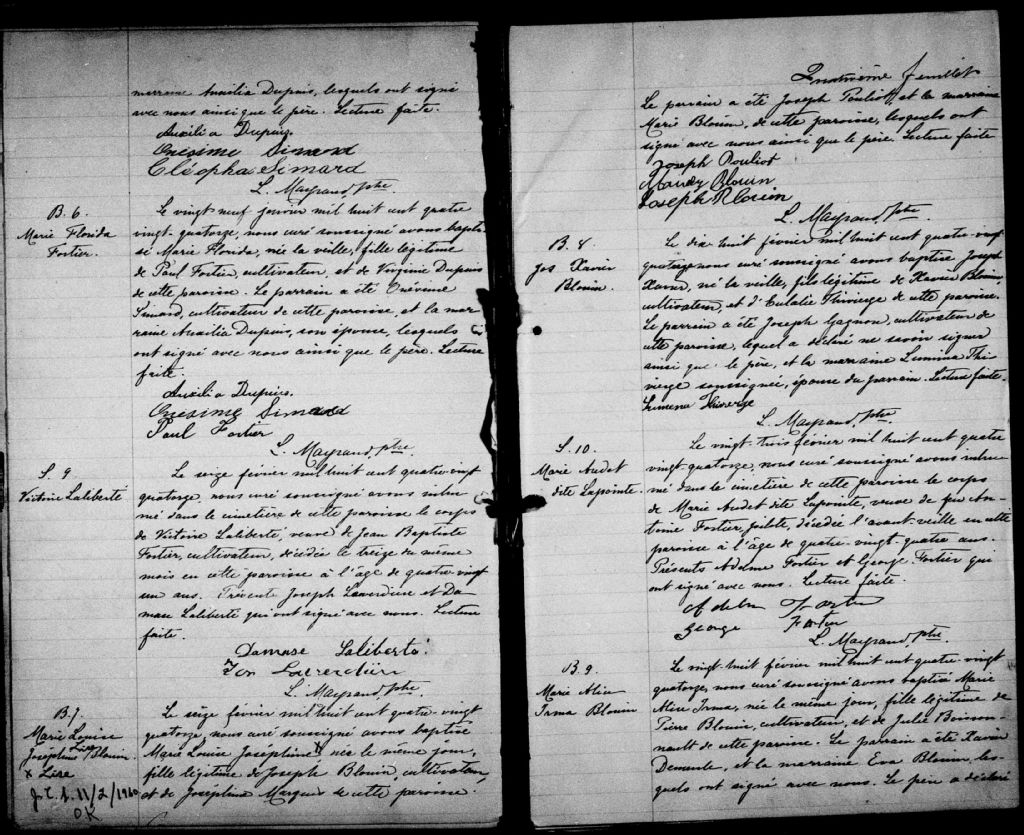 marraine Auxilia Dupuis, lesquels ont signé
avec nous ainsi que le père. Lecture faite.
Auxilia Dupuis
Onésime Simard
Cléopha Simard
L. Mayrand, ptre
B. 6.
Marie Florida
Fortier.
Le vingt-neuf janvier mil huit cent quatre
vingt-quatorze, nous curé soussigné avons bapti-
sé Marie Florida, née la veille, fille légitime
de Paul Fortier, cultivateur, et de Virginie Dupuis
de cette paroisse. Le parrain a été Onésime
Simard, cultivateur de cette paroisse, et la mar-
raine Auxilia Dupuis, son épouse, lesquels
ont signé avec nous ainsi que le père. Lecture
faite.
Auxilia Dupuis
Onésime Simard
Paul Fortier
L. Mayrand, ptre.
S. 9
Victoire Laliberté
Le seize février mil huit cent quatre-vingt
quatorze, nous curé soussigné avons inhu-
mé dans le cimetière de cette paroisse le corps
de Victoire Laliberté, veuve de Jean Baptiste
Fortier, cultivateur, décédée le treize du même
mois en cette paroisse à l'âge de quatre-vingt
un ans. Présents Joseph Laverdière et Da-
mase Laliberté qui ont signé avec nous. Lecture
faite.
Damase Laliberté
Jos Laverdière
L. Mayrand, ptre.
B. 7.
Marie Louise
Joséphine Lise Blouin.
x Lise
J. C. S. 11/2/1960
OK
Le seize février mil huit cent quatre-vingt
quatorze, nous curé soussigné avons baptisé
Marie Louise Joséphine x née le même jour,
fille légitime de Joseph Blouin, cultivateur,
et de Joséphine Marquis de cette paroisse.
Quatrième feuillet
Le parrain a été Joseph Pouliot, et la marraine
Marie Blouin, de cette paroisse, lesquels ont
signé avec nous ainsi que le père. Lecture faite
Joseph Pouliot
Blouin
Joseph Blouin
L. Mayrand, ptre
B. 8.
Jos Xavier
Blouin.
Le dix huit février mil huit cent quatre-vingt
quatorze nous curé soussigné avons baptisé Joseph
Xavier, né la veille, fils légitime de Xavier Blouin,
cultivateur, et d'Eulalie Thivierge de cette paroisse.
Le parrain a été Joseph Gagnon, cultivateur de
cette paroisse, lequel a déclaré ne savoir signer
ainsi que le père, et la marraine Lumina Thi-
vierge soussignée, épouse du parrain. Lecture faite.
Lumena Thivierge
L. Mayrand, ptre
S. 10.
Marie Audet
dite Lapointe.
Le vingt-trois février mil huit cent quatre
vingt-quatorze, nous curé soussigné avons inhu-
mé dans le cimetière de cette paroisse le corps
de Marie Audet dite Lapointe, veuve de feu An-
toine Fortier, pilote, décédée l'avant-veille en cette
paroisse à l'âge de quatre-vingt-quatre ans.
Présents Adelme Fortier et George Fortier qui
ont signé avec nous. Lecture faite.
Fortier
George Fortier
L. Mayrand, ptre.
B. 9.
Marie Alice
Irma Blouin
Le vingt-huit février mil huit cent quatre-vingt
quatorze, nous curé soussigné avons baptisé Marie
Alice Irma, née le même jour, fille légitime de
Pierre Blouin, cultivateur, et de Julie Boisson-
nault de cette paroisse. Le parrain a été Xavier
Demeule, et la marraine Eva Blouin, les-
quels ont signé avec nous. Le père a déclaré